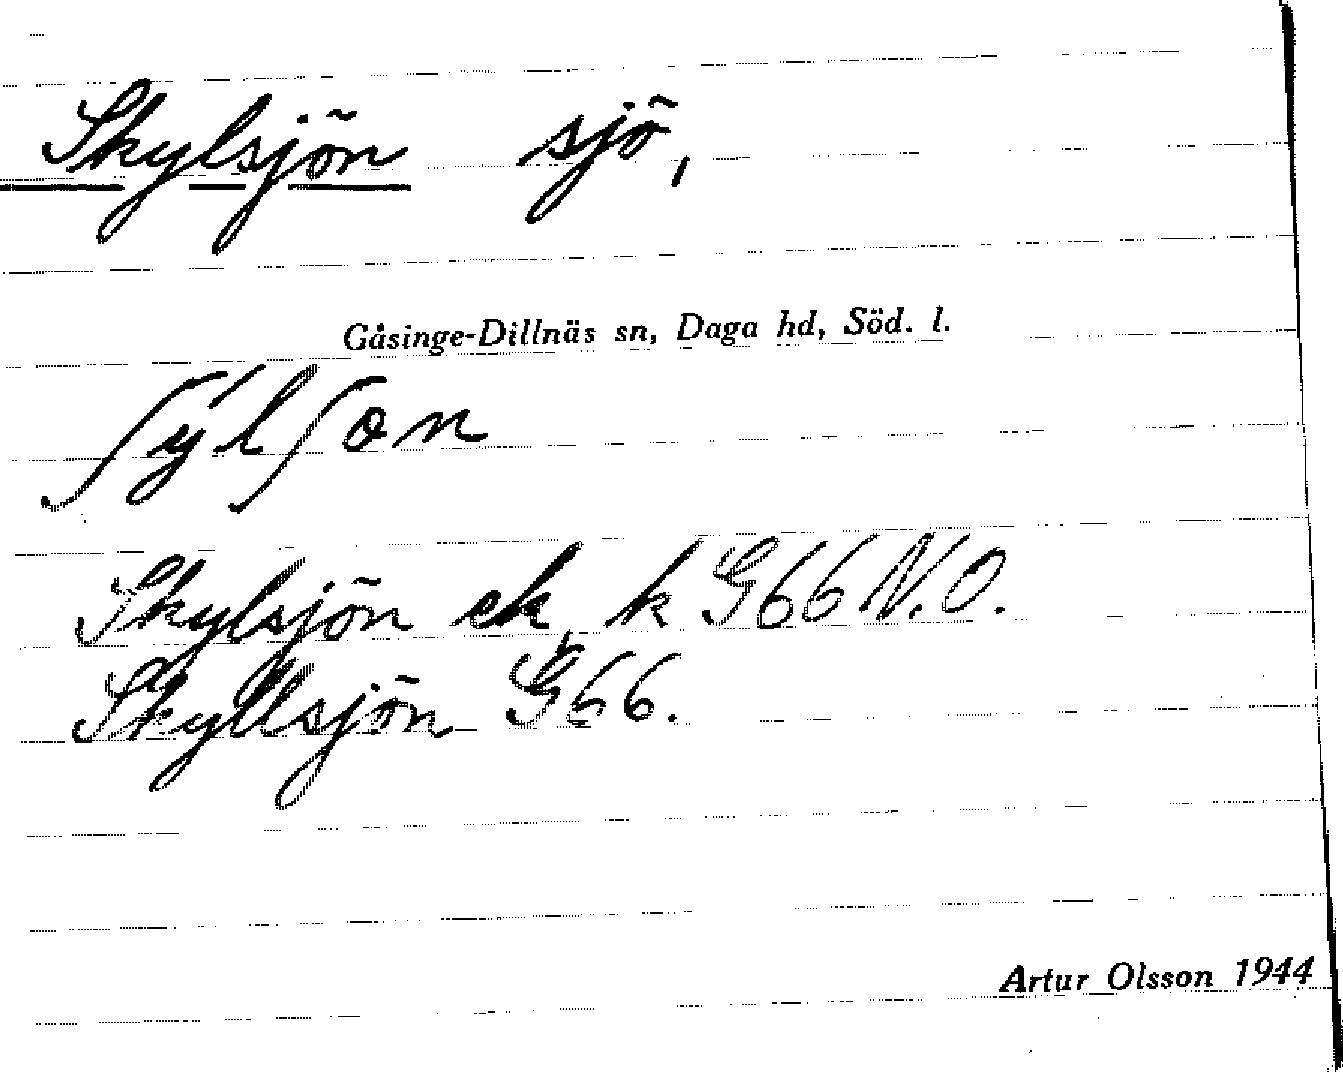 Skylsjön sjö,
Gåsinge-Dillnäs sn, Daga hd, Söd. l.
ʃýlʃon
Skylsjön ek, k G66 N.O.
Skyllsjön G66.
Artur Olsson 1944